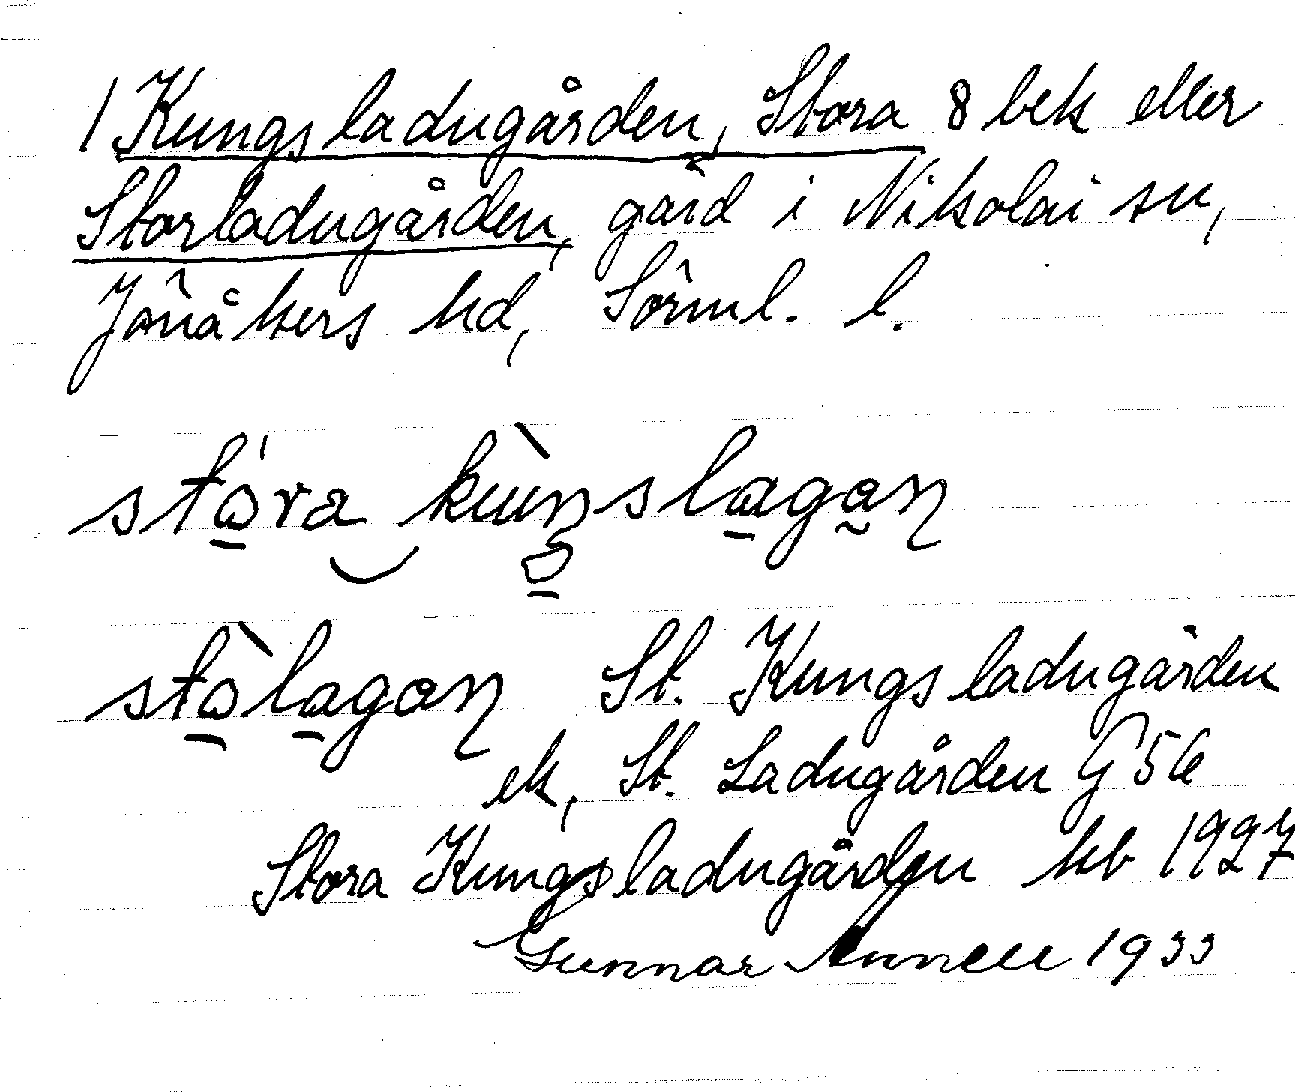 1 Kungsladugården, Stora 8 bek eller
Storladugården, gård i Nikolai sn,
Jönåkers hd, Sörml. l.
stóra kùnslagan
stòlagan St. Kungsladugården
ek, St. Ladugården G 56
Stora Kungsladugården hb 1927
Gunnar Annell 1933